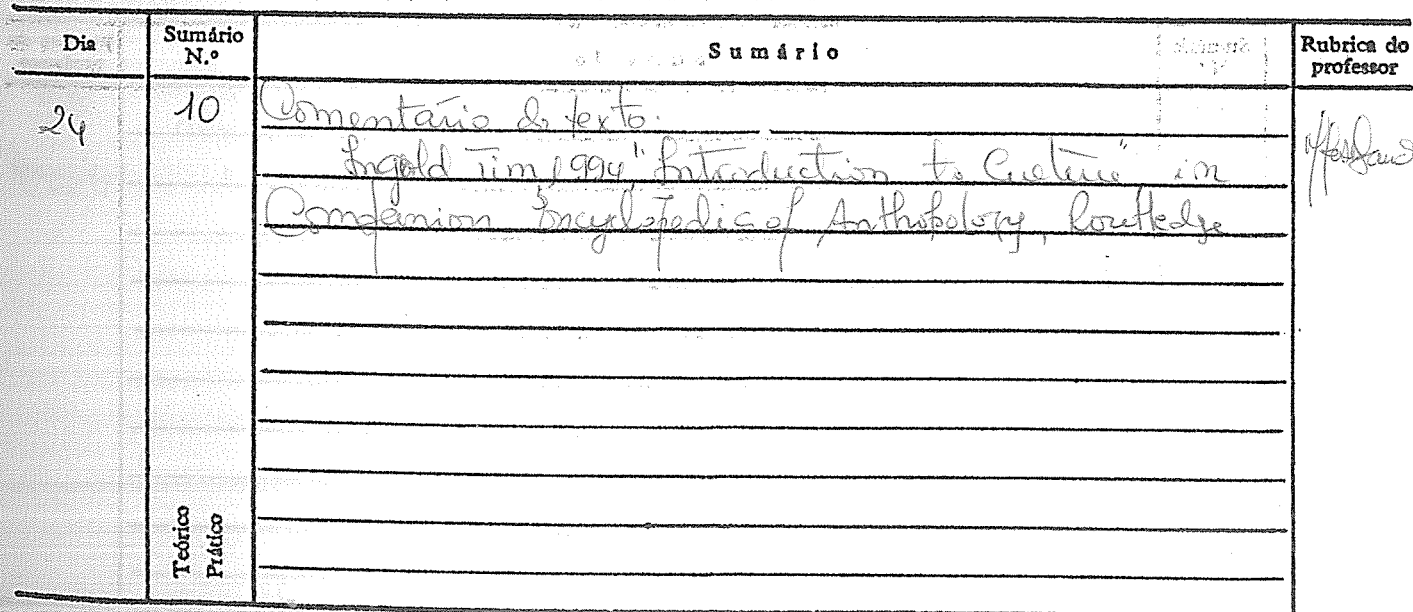 Dia Sumário N.º Sumário Rubrica do professor
24 10 Comentário de texto.
Ingold Tim, 1994, "Introduction to Culture" in
Companion Encyclopedia of Anthopology, Routledge
Teórico
Prático